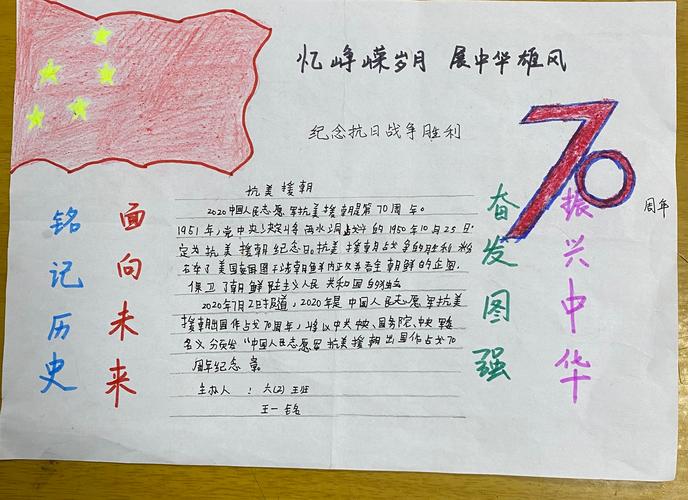 忆峥嵘岁月 展中华雄风
纪念抗日战争胜利
70
周年
铭记历史
面向未来
抗美援朝
2020中国人民志愿军抗美援朝是第70周年。
1951年,党中央决定将 的1950年10月25日
定为抗美援朝纪念日。抗美援朝战争的胜利粉
了美国 干涉朝鲜内政 朝鲜的企图,
保卫了朝鲜 主义人民共和国的
2020年7月2日报道,2020年是中国人民志愿军抗美
援朝出国作战70周年,将以中共中央、国务院、中央军委
名义 “中国人民志愿军抗美援朝出国作战70
周年纪念章。
主办人:六(2)班
王一
奋发图强
振兴中华